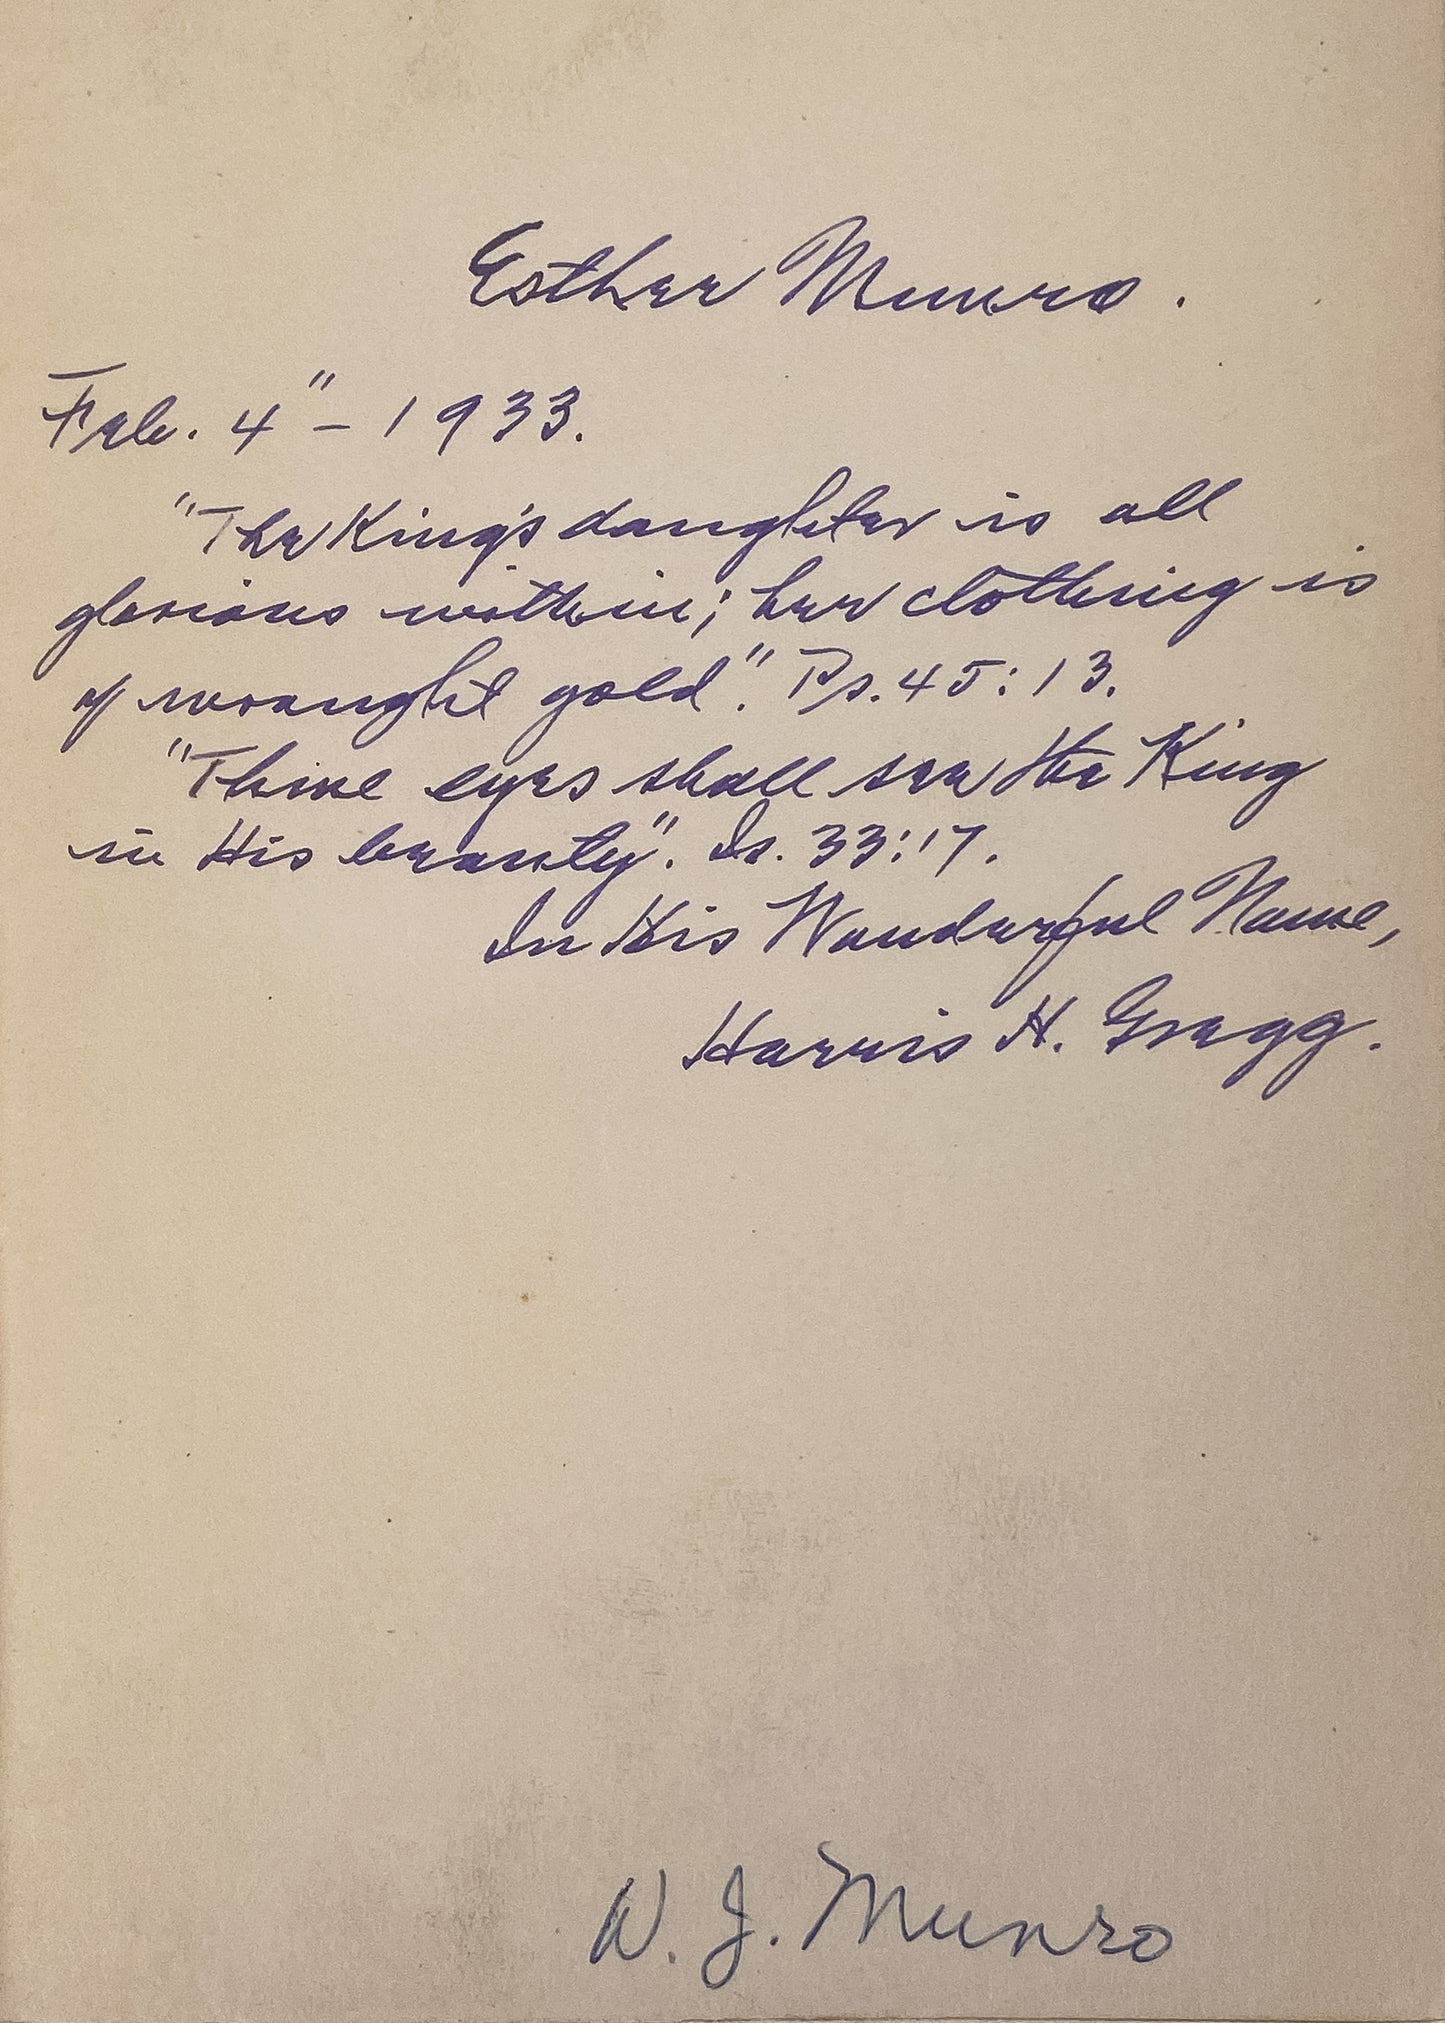 Esther Munro.
Feb. 4" - 1933.
"The King's daughter is all
glorious within; her clothing is
of wrought gold". Ps. 45:13.
"Thine eyes shall see the King
in His beauty". Is. 33:17.
In His Wonderful Name,
Harris H. Gregg.
W. J. Munro